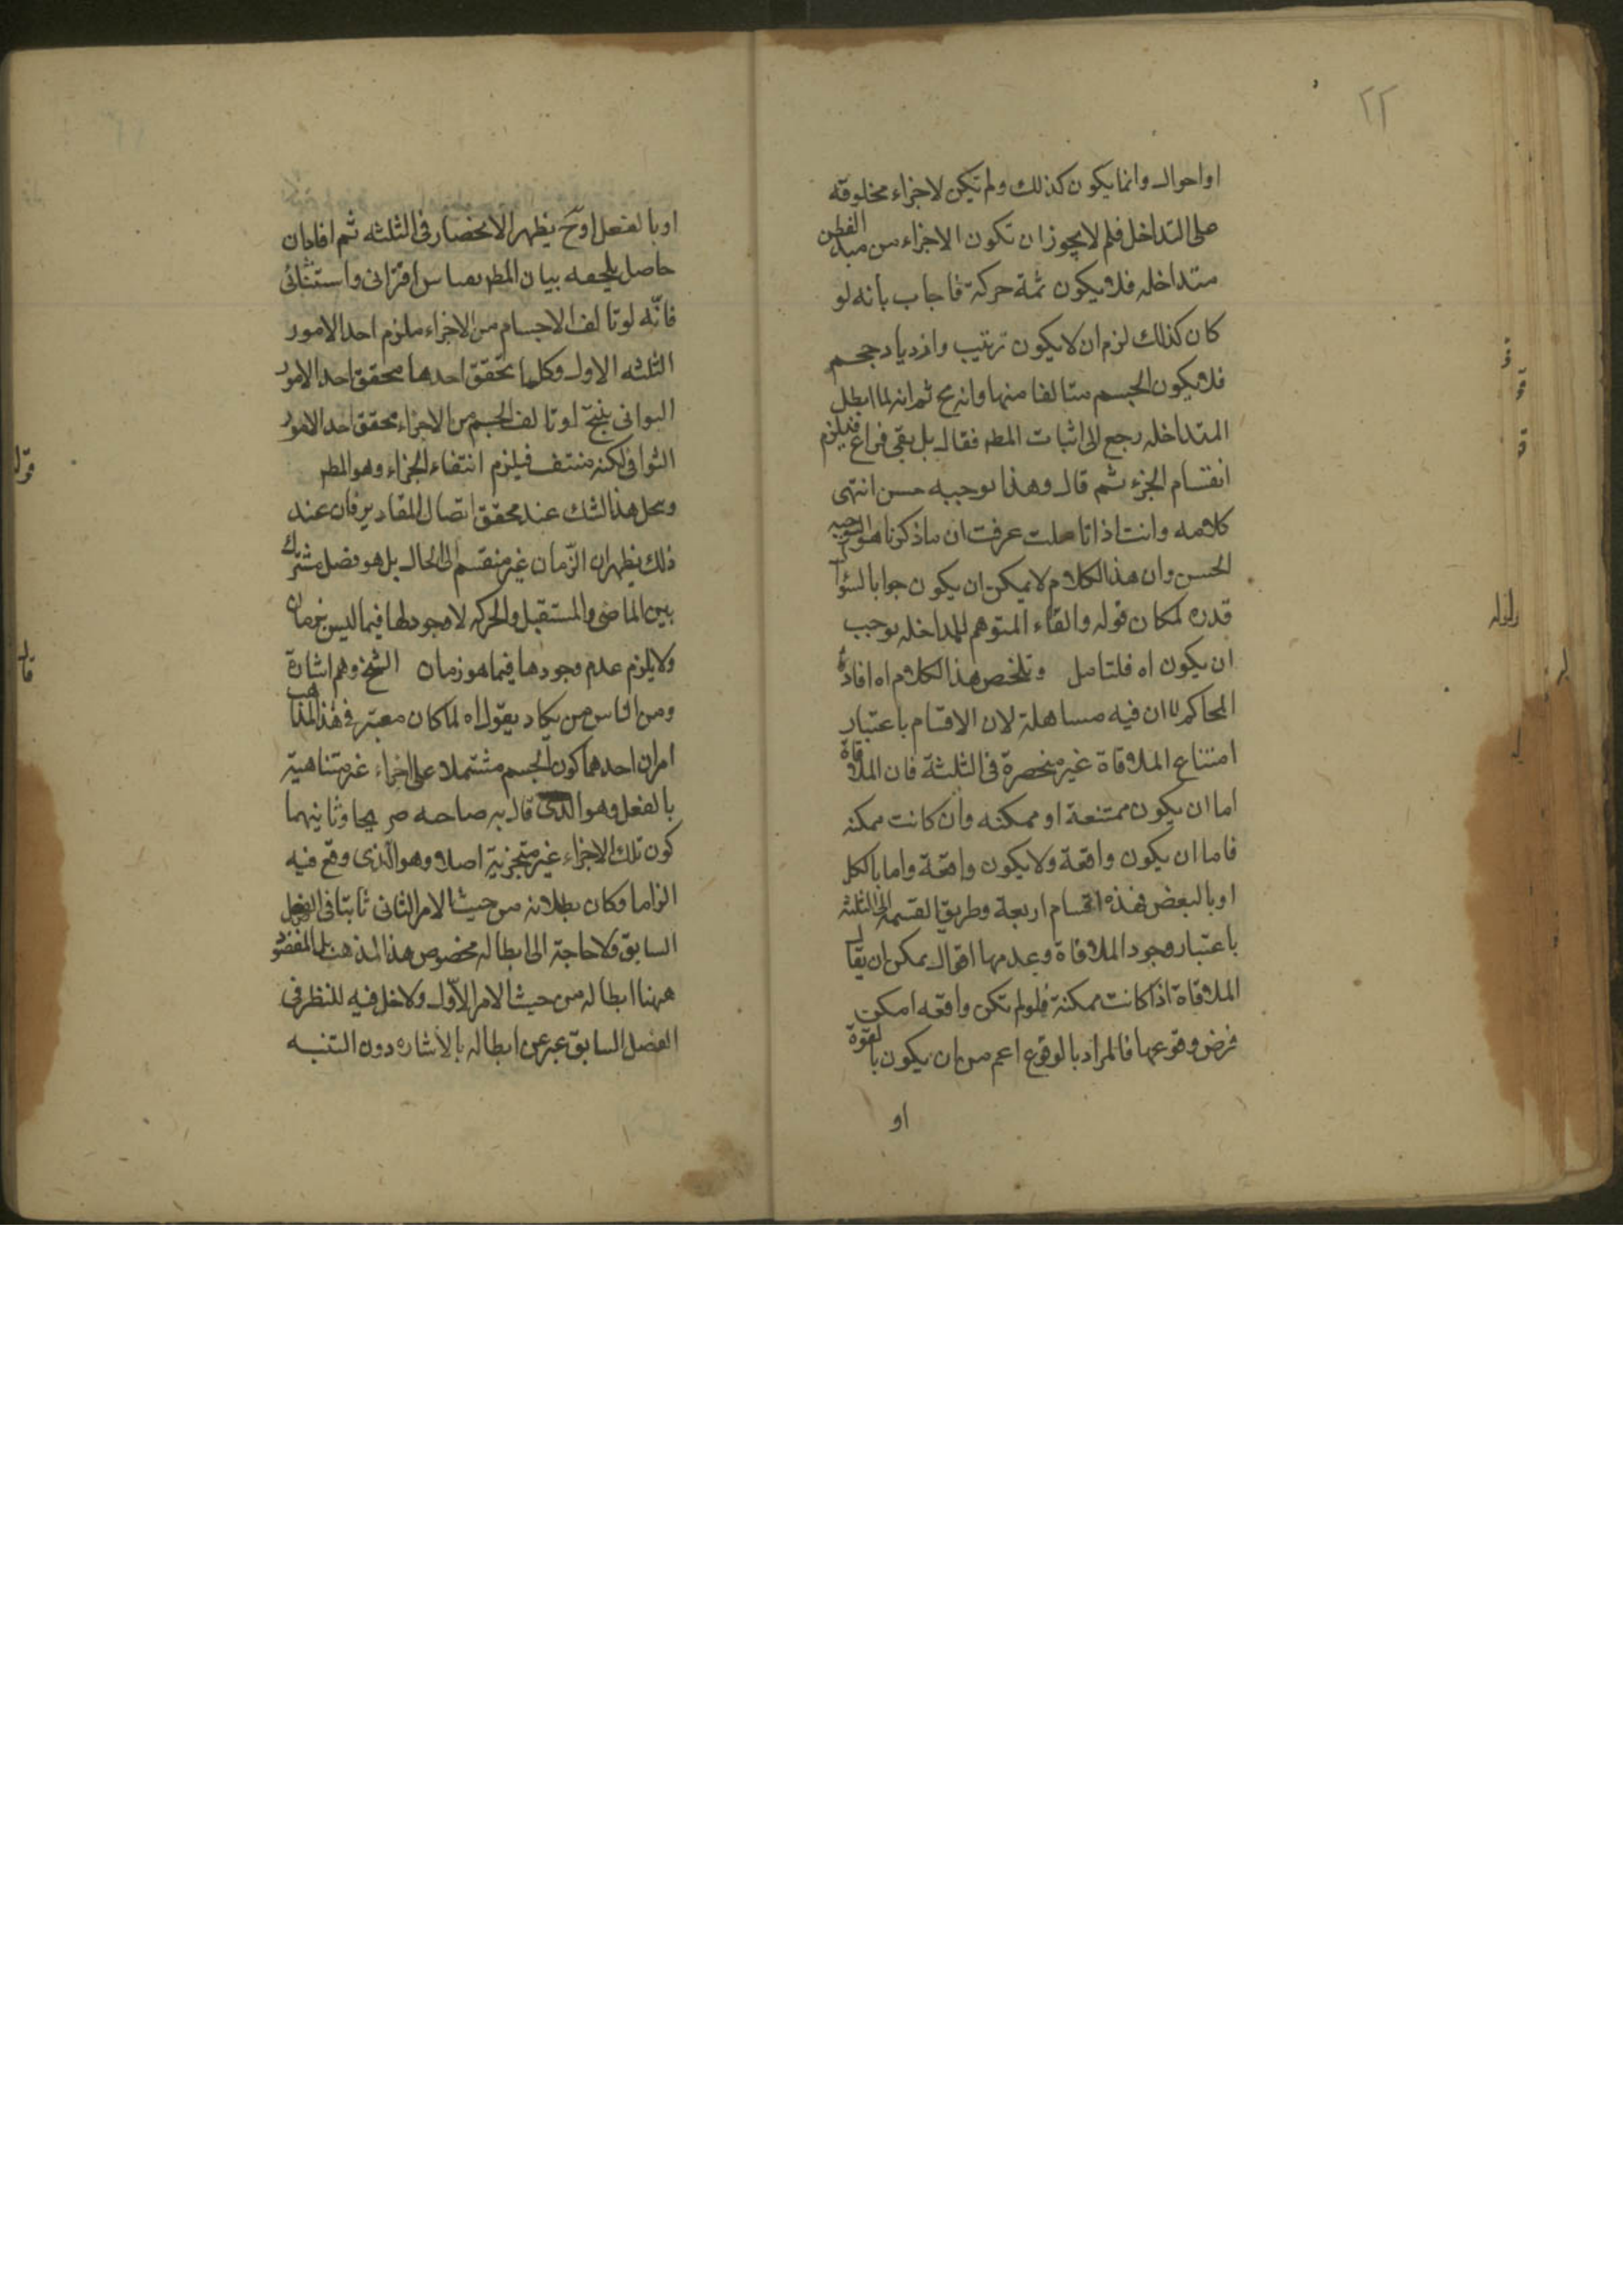 ٢٢
او احوال وانما يكون كذلك ولم تكن لاجزاء مخلوقه
على التداخل فلم لا يجوز ان تكون الاجزاء من مبدء الفطن
متداخله فلا يكون ثمة حركة فاجاب بانه لو
كان كذلك لزم ان لا يكون ترتيب وازدياد حجم
فلا يكون الجسم متالفا منها وانه مح ثم انه لما ابطل
المتداخله رجع الى اثبات المط فقال بل بقى فراغ فيلزم
انقسام الجزء ثم قال وهذا توجيه حسن انتهى
كلامه وانت اذا تاملت عرفت ان ما ذكرنا هو التوجيه
الحسن وان هذا الكلام لا يمكن ان يكون جوابا لسؤا
قدره لمكان قوله والقاء المتوهم للمداخله توجب
ان يكون اه فلتامل وتلخص هذا الكلام اه افاد
المحاكم ان فيه مساهلة لان الاقسام باعتبار
امتناع الملاقاة غير منحصرة فى الثلثة فان الملاقاة
اما ان يكون ممتنعة او ممكنه وان كانت ممكنه
فاما ان يكون واقعة ولا يكون واقعة واما بالكل
او بالبعض فهذه اقسام اربعة وطريق القسمه الى الثلثه
باعتبار وجود الملاقاة وعدمها اقول يمكن ان يقال
الملاقاة اذا كانت ممكنة فلو لم تكن واقعه امكن
فرض وقوعها فالمراد بالوقوع اعم من ان يكون بالقوة
او
او بالفعل اوح يظهر الانحصار فى الثلثه ثم افاد ان
حاصل بيان المط بقياس اقترانى واستثنائى
فانه لو تالف الاجسام من الاجزاء ملزم احد الامور
الثلثه الاول وكلما تحقق احدها تحقق احد الامور
التوانى ينتج لو تالف الجسم من الاجزاء تحقق احد الامور
الثوانى لكنه منتف فيلزم انتفاء الجزاء وهو المط
ويحل هذا الشك عند تحقق اتصال المقادير فان عند
ذلك يظهر ان الزمان غير منقسم الى الحال بل هو فصل مشترك
بين الماضى والمستقبل والحركه لا وجود لها فيما ليس بزمان
ولا يلزم عدم وجودها فيما هو زمان الشيخ وهم اشارة
ومن الناس من يكاد يقول اه لما كان معتبر فى هذا المذهب
امران احدهما كون الجسم مشتملا على اجزاء غير متناهية
بالفعل وهو الذى قال به صاحبه صريحا وثانيهما
كون تلك الاجزاء غير متجزية اصلا وهو الذى وقع فيه
الزاما وكان بطلانه من حيث الامر الثانى ثابتا فى الفصل
السابق ولا حاجة الى ابطاله بخصوص هذا المذهب بل المقصود
ههنا ابطاله من حيث الامر الاول ولا دخل فيه للنظر فى
الفصل السابق عبر عن ابطاله بالاشاره دون التنبيه
قوله
قال